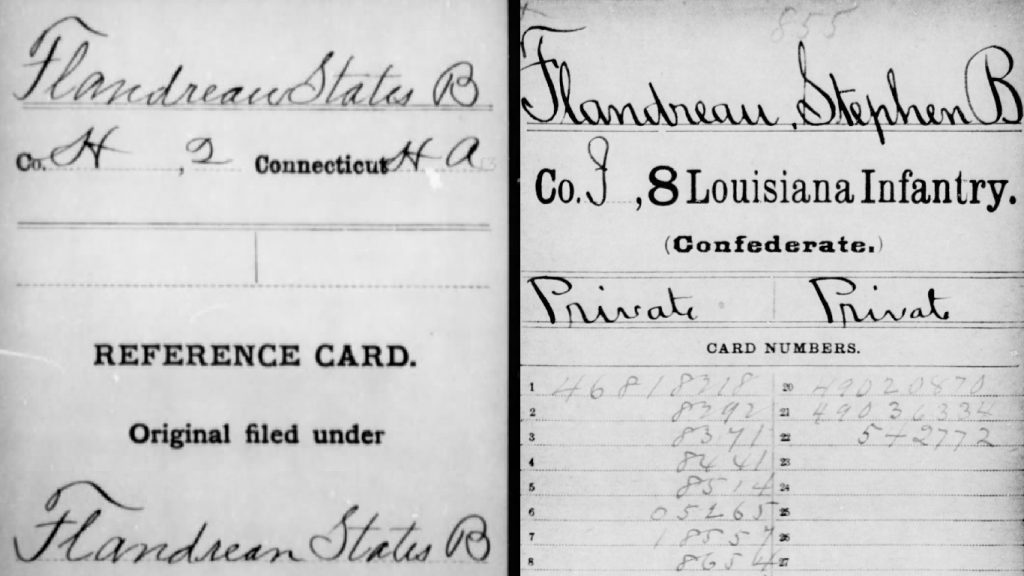 Flandreau States B
Co. H , 2 Connecticut H A
REFERENCE CARD.
Original filed under
Flandrean States B
855
Flandreau, Stephen B
Co. I , 8 Louisiana Infantry.
(Confederate.)
Private Private
CARD NUMBERS.
1 46818218 20 49020870
2 8392 21 49036334
3 8371 22 542772
4 8441 23
5 8514 24
6 05265 25
7 18557 26
8 8654 27